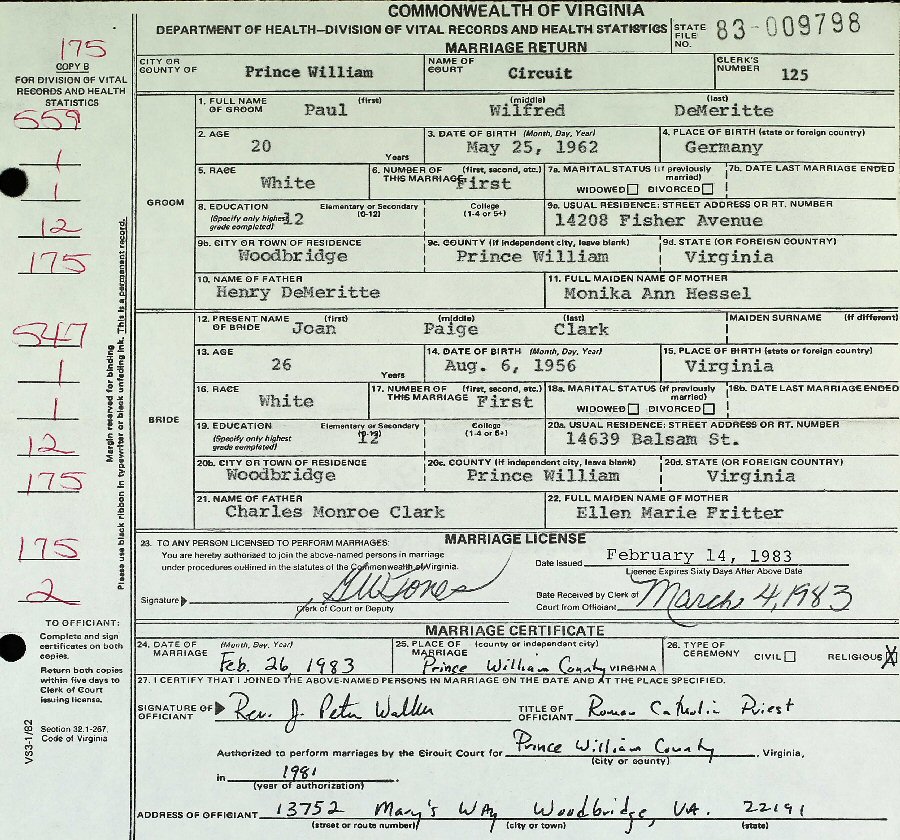 COMMONWEALTH OF VIRGINIA
DEPARTMENT OF HEALTH—DIVISION OF VITAL RECORDS AND HEALTH STATISTICS
MARRIAGE RETURN
STATE FILE NO. 83-009798
175
COPY B
FOR DIVISION OF VITAL RECORDS AND HEALTH STATISTICS
559
1
1
12
175
547
1
1
12
175
175
2
Margin reserved for binding
Please use black ribbon in typewriter or black unfading ink. This is a permanent record.
CITY OR COUNTY OF Prince William
NAME OF COURT Circuit
CLERK'S NUMBER 125
GROOM
1. FULL NAME OF GROOM (first) Paul (middle) Wilfred (last) DeMeritte
2. AGE 20 Years
3. DATE OF BIRTH (Month, Day, Year) May 25, 1962
4. PLACE OF BIRTH (state or foreign country) Germany
5. RACE White
6. NUMBER OF THIS MARRIAGE (first, second, etc.) First
7a. MARITAL STATUS (if previously married) WIDOWED DIVORCED
7b. DATE LAST MARRIAGE ENDED
8. EDUCATION (Specify only highest grade completed) Elementary or Secondary (0-12) 12 College (1-4 or 5+)
9a. USUAL RESIDENCE: STREET ADDRESS OR RT. NUMBER 14208 Fisher Avenue
9b. CITY OR TOWN OF RESIDENCE Woodbridge
9c. COUNTY (If independent city, leave blank) Prince William
9d. STATE (OR FOREIGN COUNTRY) Virginia
10. NAME OF FATHER Henry DeMeritte
11. FULL MAIDEN NAME OF MOTHER Monika Ann Hessel
BRIDE
12. PRESENT NAME OF BRIDE (first) Joan (middle) Paige (last) Clark
MAIDEN SURNAME (If different)
13. AGE 26 Years
14. DATE OF BIRTH (Month, Day, Year) Aug. 6, 1956
15. PLACE OF BIRTH (state or foreign country) Virginia
16. RACE White
17. NUMBER OF THIS MARRIAGE (first, second, etc.) First
18a. MARITAL STATUS (if previously married) WIDOWED DIVORCED
18b. DATE LAST MARRIAGE ENDED
19. EDUCATION (Specify only highest grade completed) Elementary or Secondary (0-12) 12 College (1-4 or 5+)
20a. USUAL RESIDENCE: STREET ADDRESS OR RT. NUMBER 14639 Balsam St.
20b. CITY OR TOWN OF RESIDENCE Woodbridge
20c. COUNTY (If independent city, leave blank) Prince William
20d. STATE (OR FOREIGN COUNTRY) Virginia
21. NAME OF FATHER Charles Monroe Clark
22. FULL MAIDEN NAME OF MOTHER Ellen Marie Fritter
MARRIAGE LICENSE
23. TO ANY PERSON LICENSED TO PERFORM MARRIAGES:
You are hereby authorized to join the above-named persons in marriage
under procedures outlined in the statutes of the Commonwealth of Virginia.
Date Issued February 14, 1983
License Expires Sixty Days After Above Date
Signature GW Jones
Clerk of Court or Deputy
Date Received by Clerk of Court from Officiant March 4, 1983
TO OFFICIANT:
Complete and sign certificates on both copies.
Return both copies within five days to Clerk of Court issuing license.
Section 32.1-267, Code of Virginia
VS3-1/82
MARRIAGE CERTIFICATE
24. DATE OF MARRIAGE (Month, Day, Year) Feb. 26, 1983
25. PLACE OF MARRIAGE (county or independent city) Prince William County VIRGINIA
26. TYPE OF CEREMONY CIVIL RELIGIOUS X
27. I CERTIFY THAT I JOINED THE ABOVE-NAMED PERSONS IN MARRIAGE ON THE DATE AND AT THE PLACE SPECIFIED.
SIGNATURE OF OFFICIANT Rev. J. Peter
TITLE OF OFFICIANT Roman Catholic Priest
Authorized to perform marriages by the Circuit Court for Prince William County, Virginia,
(city or county)
in 1981.
(year of authorization)
ADDRESS OF OFFICIANT 13752 Mary's Way Woodbridge, VA. 22191
(street or route number) (city or town) (state)